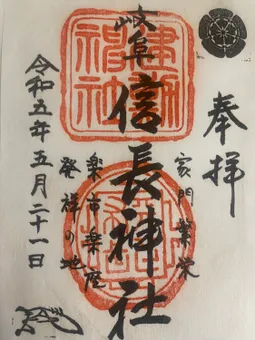 奉拝
家門繁栄
岐阜信長神社
建勲神社
楽市楽座
発祥の地
令和五年五月二十一日